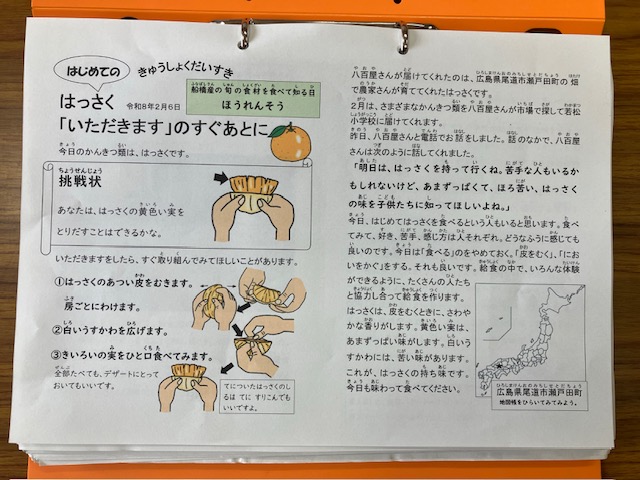 はじめての
きゅうしょくだいすき
はっさく
令和8年2月6日
船橋産の旬の食材を食べて知る日
ほうれんそう
「いただきます」のすぐあとに
今日のかんきつ類は、はっさくです。
挑戦状
あなたは、はっさくの黄色い実を
とりだすことはできるかな。
いただきますをしたら、すぐ取り組んでみてほしいことがあります。
①はっさくのあつい皮をむきます。
房ごとにわけます。
②白いうすかわを広げます。
③きいろいの実をひと口食べてみます。
全部たべても、デザートにとって
おいてもいいです。
てについたはっさくのし
るは てに すりこんでも
いいですよ。
八百屋さんが届けてくれたのは、広島県尾道市瀬戸田町の 畑
で農家さんが育ててくれたはっさくです。
2月は、さまざまなかんきつ類を八百屋さんが市場で探して若松
小学校に届けてくれます。
昨日、八百屋さんと電話でお話をしました。話のなかで、八百屋
さんは次のように話してくれました。
「明日は、はっさくを持って行くね。苦手な人もいるか
もしれないけど、あまずっぱくて、ほろ苦い、はっさく
の味を子供たちに知ってほしいよね。」
今日、はじめてはっさくを食べるという人もいると思います。食べ
てみて、好き、苦手、感じ方は人それぞれ。どうなふうに感じても
良いのです。今日は「食べる」のをやめておく。「皮をむく」、「にお
いをかぐ」をする。それも良いです。給食の中で、いろんな体験
ができるように、たくさんの人たち
と協力し合って給食を作ります。
はっさくは、皮をむくときに、さわや
かな香りがします。黄色い実は、
あまずっぱい味がします。白いう
すかわには、苦い味があります。
これが、はっさくの持ち味です。
今日も味わって食べてください。
広島県尾道市瀬戸田町
地図帳をひらいてみてみよう。